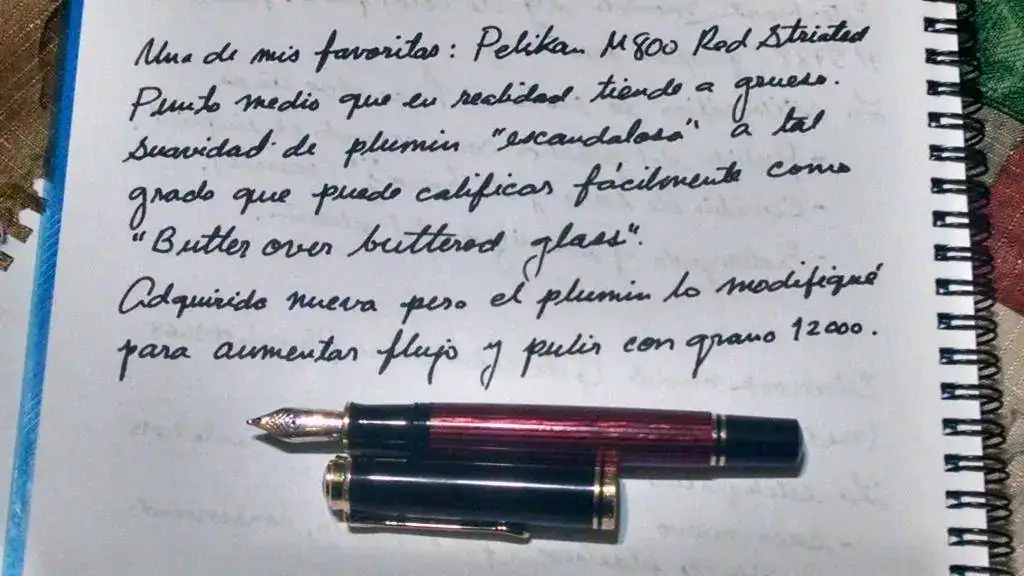 Una de mis favoritas: Pelikan M800 Red Striated
Punto medio que en realidad tiende a grueso.
Suavidad de plumin "escandalosa" a tal
grado que puede calificar fácilmente como
"Butter over buttered glass".
Adquirida nueva pero el plumin lo modifiqué
para aumentar flujo y pulir con grano 12000.